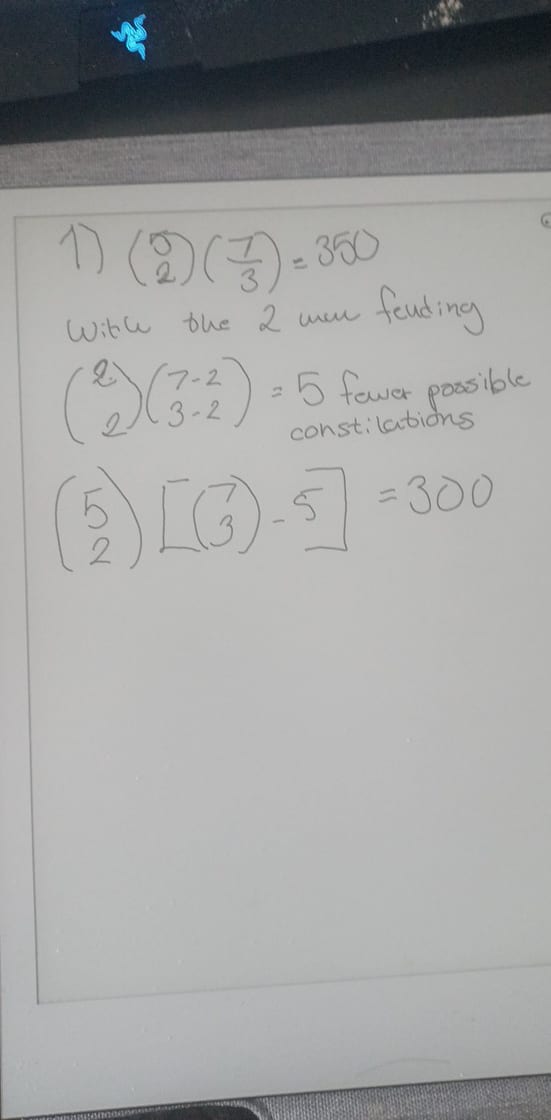 1) (5 2) (7 3) = 350
With the 2 men feuding
(2 2) (7-2 3-2) = 5 fewer possible
constilations
(5 2) [(7 3) - 5] = 300